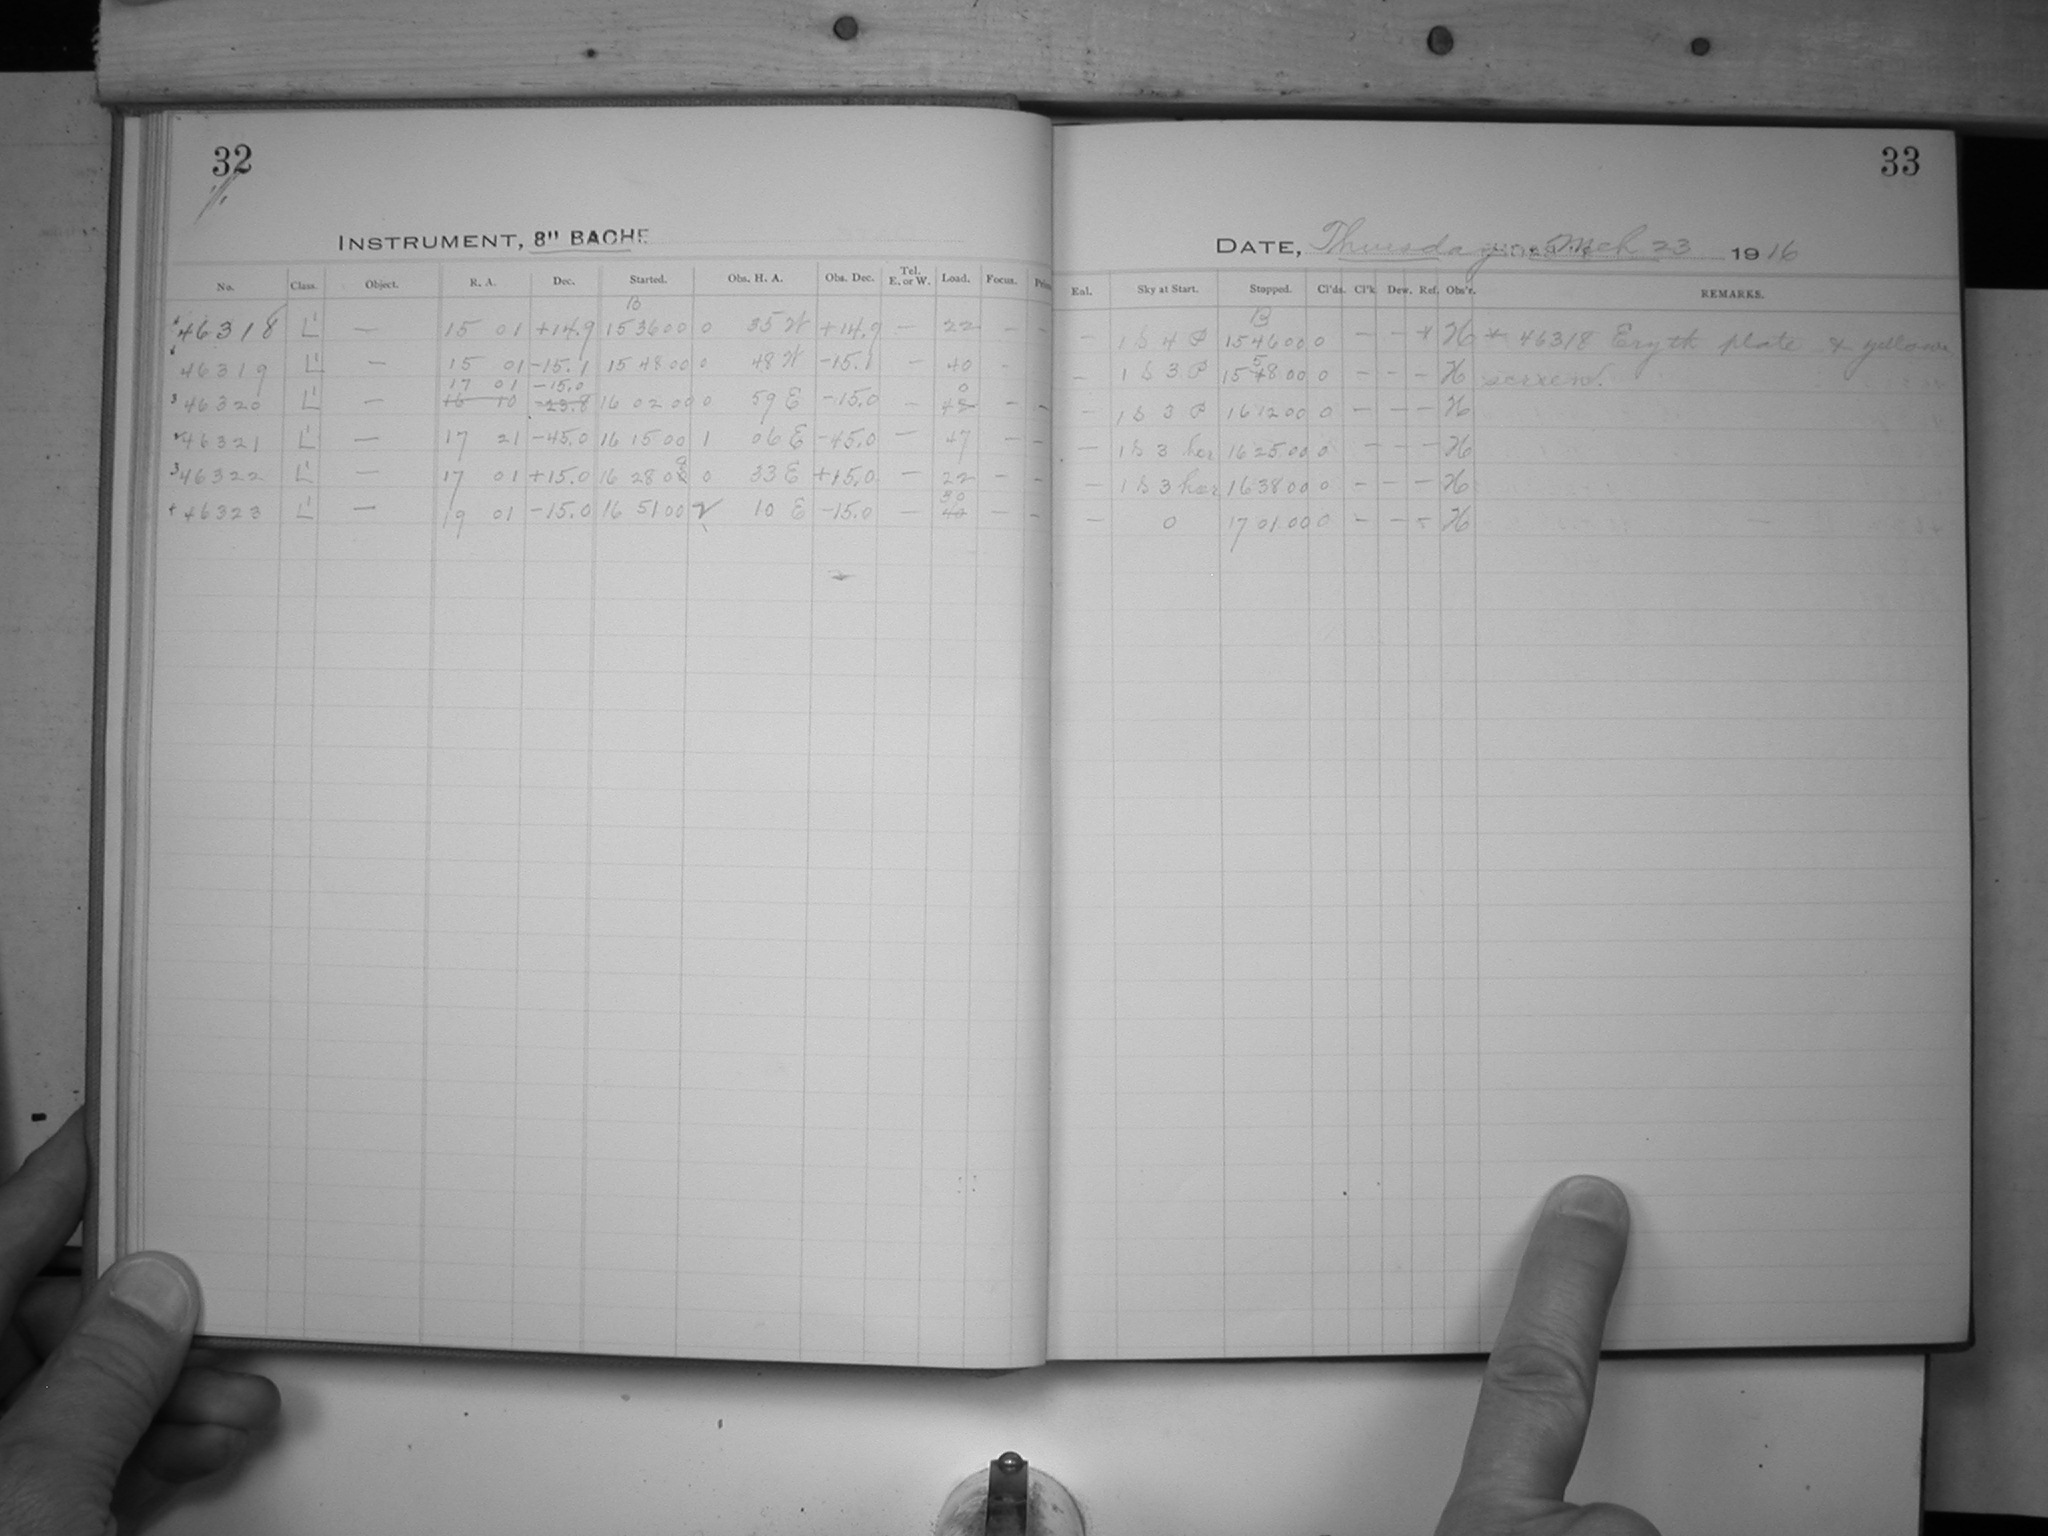 32
33
INSTRUMENT, 8" BACHE
DATE, Thursday, Mch 23 1916
No. Class. Object. R. A. Dec. Started. Obs. H. A. Obs. Dec. Tel. E. or W. Load. Focus. Eal. Sky at Start. Stopped. Cl'ds. Cl'k Dew. Ref. Obs'r. REMARKS.
B B
46318 L' — 15 01 +14.9 15 36 00 0 35 W +14.9 — 22 — — — 1 S 4 P 15 46 00 0 — — * H * 46318 Eryth plate & yellow
46319 L' — 15 01 -15.1 15 48 00 0 48 W -15.1 — 40 — — 1 S 3 P 15 58 00 0 — — — H screen.
17 01 -15.0 0
46320 L' — 16 10 -23.8 16 02 00 0 59 E -15.0 — — — — 1 S 3 P 16 12 00 0 — — — H
46321 L' — 17 21 -45.0 16 15 00 1 06 E -45.0 — 47 — — — 1 S 3 hor 16 25 00 0 — — — H
46322 L' — 17 01 +15.0 16 28 00 0 33 E +15.0 — 22 — — — 1 S 3 hor 16 38 00 0 — — — H
30
46323 L' — 19 01 -15.0 16 51 00 2 10 E -15.0 — 40 — — — 0 17 01 00 0 — — — H